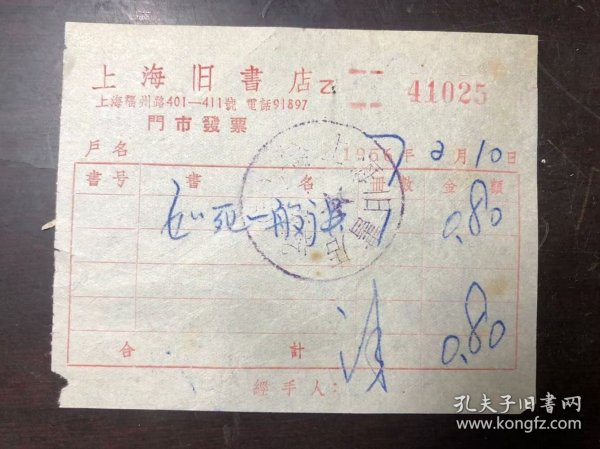 上海旧書店 乙 41025
上海福州路401—411號 電話91897
門市發票
戶名 1966年2月10日
書号 書名 冊数 金額
如死一般强 1 0.80
合計 0.80
經手人:
孔夫子旧書网
www.kongfz.com